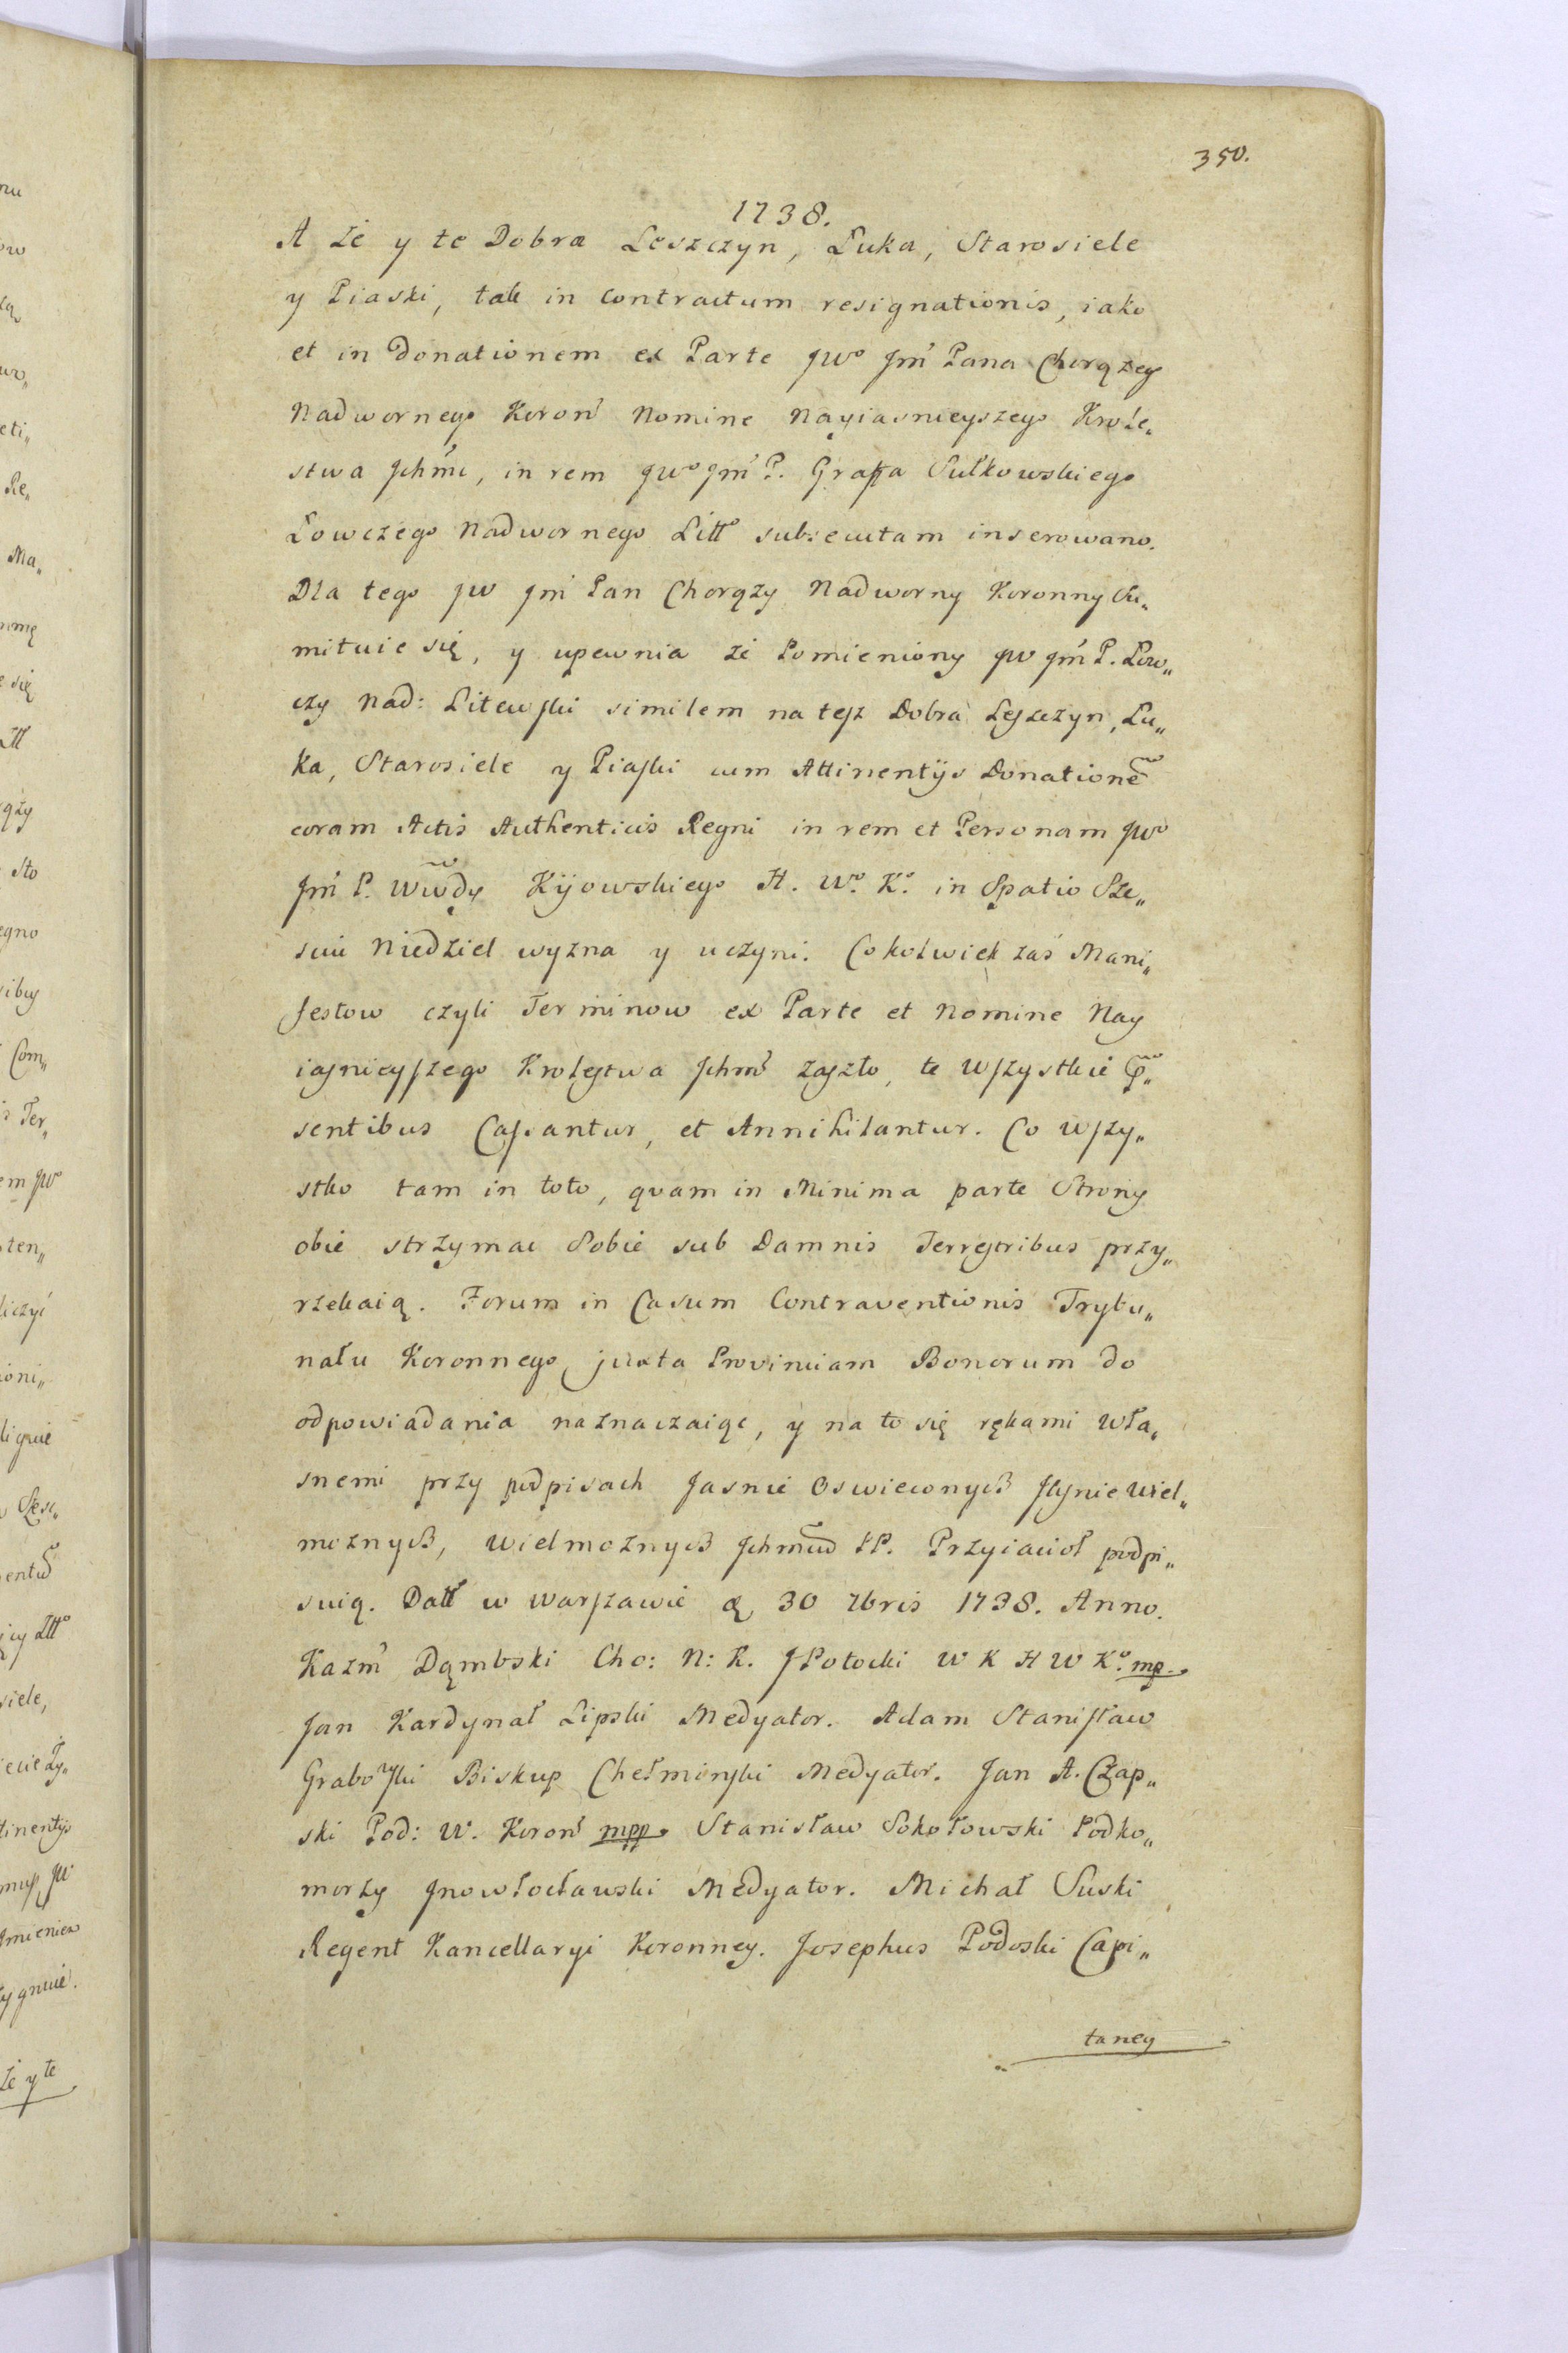 350.
1738.
A że y te Dobra Leszczyn, Łuka, Starosiele
y Piaski, tak in contractum resignationis, iako
et in Donationem ex Parte JWo Jm̃ Pana Chorążeg
Nadwornego Koroñ Nomine Nayiasnieyszego Krole„
stwa Jchm̃ci, in rem JWo Jm̃ P. Graffa Sułkowskiego
Łowczego Nadwornego Litto subsecutam inserowano.
Dla tego JW Jm̃ Pan Chorąży Nadworny Koronny Su„
mituie się, y upewnia że Pomieniony JW Jm̃ P. Łow„
czy Nad: Litewski similem na tesz Dobra Leszczyn, Łu„
ka, Starosiele y Piaski cum Attinentijs Donatione͠
coram Actis Authenticis Regni in rem et Personam JWo
Jm̃ P. Ww͠dy Kijowskiego H. Wo. Ko. in Spatio Sze„
sciu Niedziel wyzna y uczyni. Cokolwiek zaś Mani„
festow czyli Terminow ex Parte et Nomine Nay
iasnieyszego Krolestwa Jchm̃ zaszło, te wszystkie p͠„
sentibus Cassantur, et Annihilantur. Co wszy„
stko tam in toto, quam in Minima parte Strony
obie strzymac Sobie sub Damnis Terrestribus przy„
rzekaią. Forum in Casum Contraventionis Trybu„
nału Koronnego juxta Provinciam Bonorum do
odpowiadania naznaczaiąc, y na to się rękami Wła„
snemi przy podpisach Jasnie Oswieconych Jasnie Wiel„
moznych, Wielmoznych Jchm͠ PP. Przyiacioł podpi„
suią. Datt w Warszawie d. 30 7bris 1738. Anno.
Kazm̃ Dąmbski Cho: N: K. JPotocki W K H W Ko. mp.
Jan Kardynał Lipski Medyator. Adam Stanisław
Grabowski Biskup Chełminski Medyator. Jan A. Czap„
ski Pod: W. Koroñ mpp. Stanisław Sokołowski Podko„
morzy Jnowłocławski Medyator. Michał Suski
Regent Kancellaryi Koronney. Josephus Podoski Capi„
taney